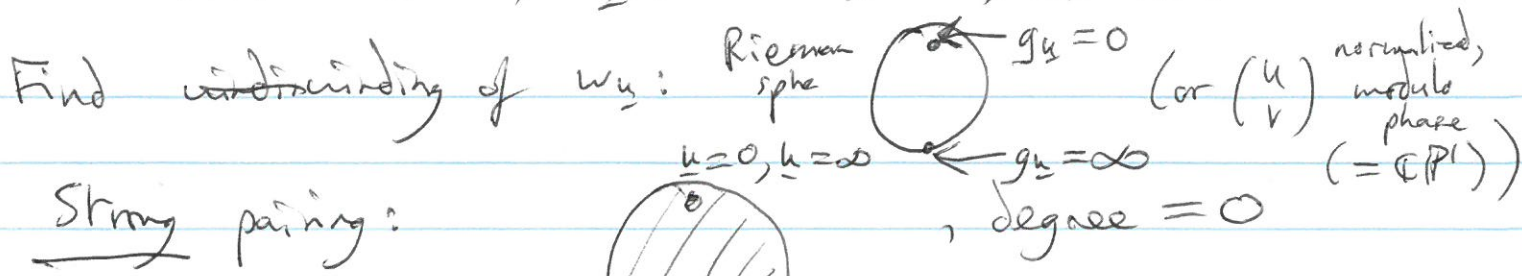 Find winding of w_k: Rieman sphe g_k = 0 (or (u v) normalized, modulo phase (= ℂP¹))
k=0, k=∞ g_k = ∞
Strong pairing: , degree = 0